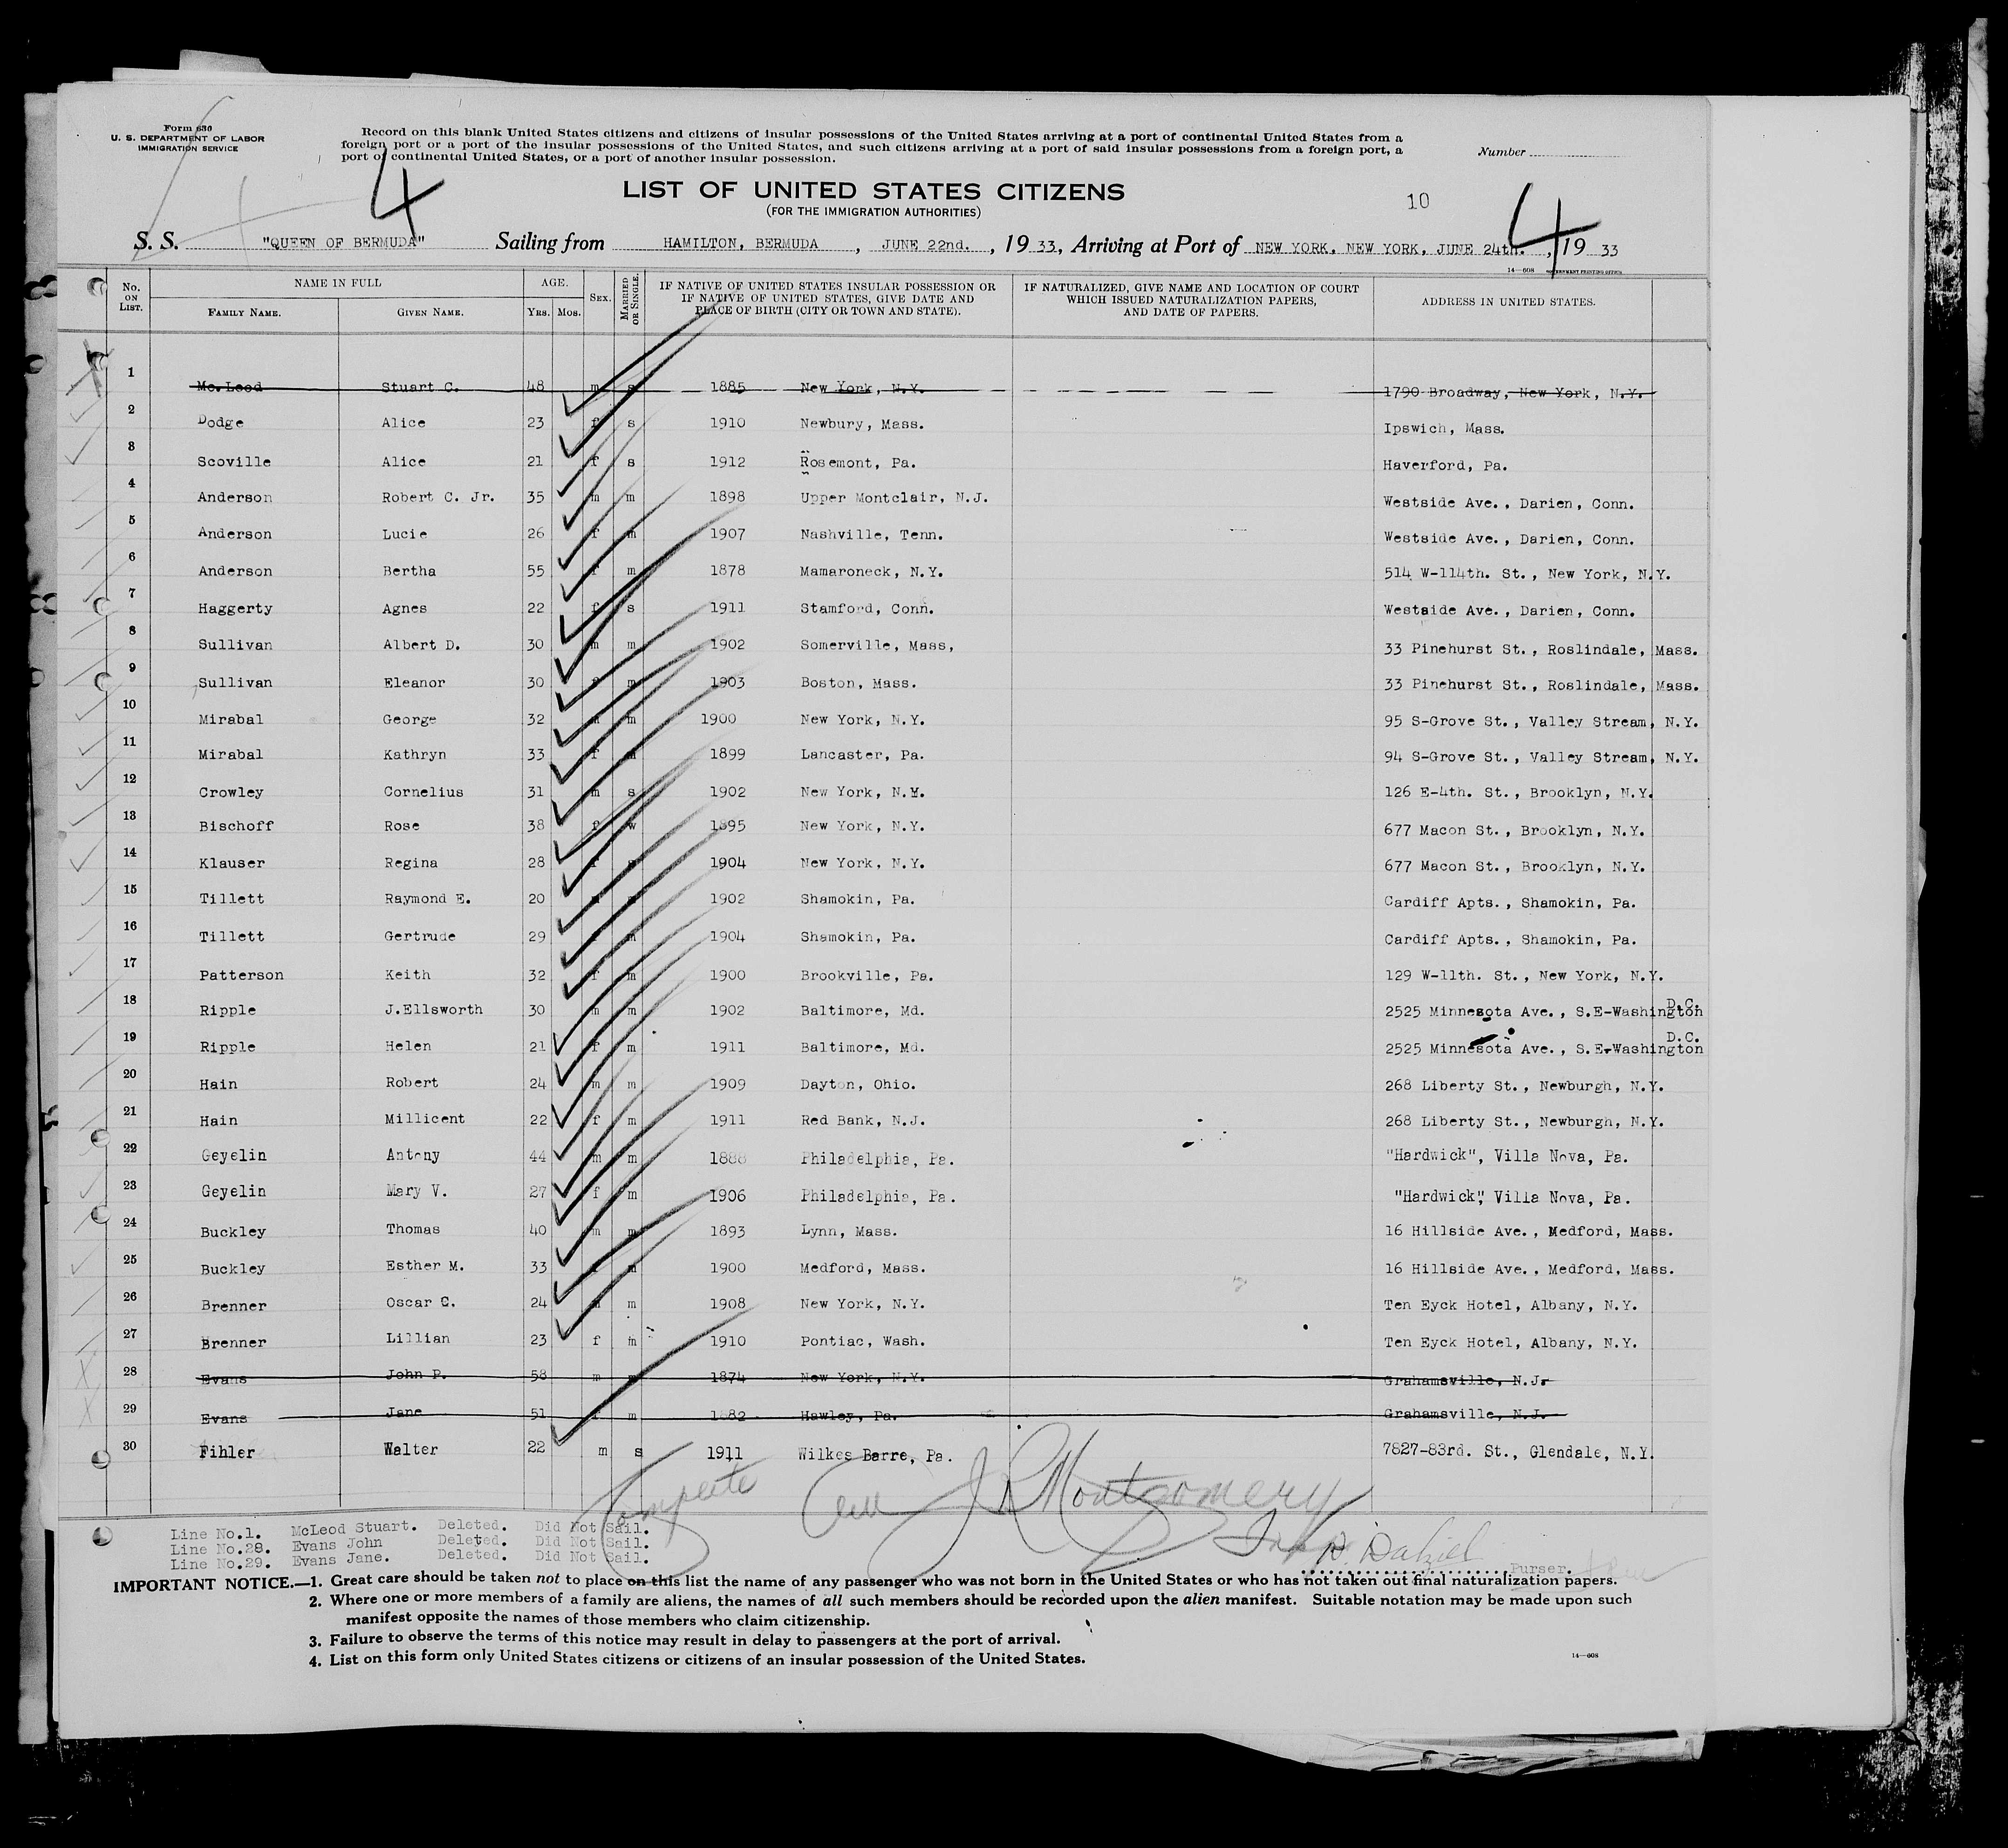 Form 630
U. S. DEPARTMENT OF LABOR
IMMIGRATION SERVICE
Record on this blank United States citizens and citizens of insular possessions of the United States arriving at a port of continental United States from a
foreign port or a port of the insular possessions of the United States, and such citizens arriving at a port of said insular possessions from a foreign port, a
port of continental United States, or a port of another insular possession.
Number
4
LIST OF UNITED STATES CITIZENS
(FOR THE IMMIGRATION AUTHORITIES)
10
4
S. S. "QUEEN OF BERMUDA" Sailing from HAMILTON, BERMUDA, JUNE 22nd., 1933, Arriving at Port of NEW YORK, NEW YORK, JUNE 24th., 1933
14—608 GOVERNMENT PRINTING OFFICE
No. ON LIST. NAME IN FULL FAMILY NAME. GIVEN NAME. AGE. YRS. MOS. SEX. MARRIED OR SINGLE. IF NATIVE OF UNITED STATES INSULAR POSSESSION OR IF NATIVE OF UNITED STATES, GIVE DATE AND PLACE OF BIRTH (CITY OR TOWN AND STATE). IF NATURALIZED, GIVE NAME AND LOCATION OF COURT WHICH ISSUED NATURALIZATION PAPERS, AND DATE OF PAPERS. ADDRESS IN UNITED STATES.
1 Mc.Leod Stuart C. 48 m s 1885 New York, N.Y. 1790 Broadway, New York, N.Y.
2 Dodge Alice 23 f s 1910 Newbury, Mass. Ipswich, Mass.
3 Scoville Alice 21 f s 1912 Rosemont, Pa. Haverford, Pa.
4 Anderson Robert C. Jr. 35 m m 1898 Upper Montclair, N.J. Westside Ave., Darien, Conn.
5 Anderson Lucie 26 f m 1907 Nashville, Tenn. Westside Ave., Darien, Conn.
6 Anderson Bertha 55 f m 1878 Mamaroneck, N.Y. 514 W-114th. St., New York, N.Y.
7 Haggerty Agnes 22 f s 1911 Stamford, Conn. Westside Ave., Darien, Conn.
8 Sullivan Albert D. 30 m m 1902 Somerville, Mass, 33 Pinehurst St., Roslindale, Mass.
9 Sullivan Eleanor 30 f m 1903 Boston, Mass. 33 Pinehurst St., Roslindale, Mass.
10 Mirabal George 32 m 1900 New York, N.Y. 95 S-Grove St., Valley Stream, N.Y.
11 Mirabal Kathryn 33 f m 1899 Lancaster, Pa. 94 S-Grove St., Valley Stream, N.Y.
12 Crowley Cornelius 31 m s 1902 New York, N.Y. 126 E-4th. St., Brooklyn, N.Y.
13 Bischoff Rose 38 f w 1895 New York, N.Y. 677 Macon St., Brooklyn, N.Y.
14 Klauser Regina 28 f s 1904 New York, N.Y. 677 Macon St., Brooklyn, N.Y.
15 Tillett Raymond E. 20 1902 Shamokin, Pa. Cardiff Apts., Shamokin, Pa.
16 Tillett Gertrude 29 m 1904 Shamokin, Pa. Cardiff Apts., Shamokin, Pa.
17 Patterson Keith 32 f m 1900 Brookville, Pa. 129 W-11th. St., New York, N.Y.
18 Ripple J.Ellsworth 30 m m 1902 Baltimore, Md. 2525 Minnesota Ave., S.E-Washington D.C.
19 Ripple Helen 21 f m 1911 Baltimore, Md. 2525 Minnesota Ave., S.E-Washington D.C.
20 Hain Robert 24 m m 1909 Dayton, Ohio. 268 Liberty St., Newburgh, N.Y.
21 Hain Millicent 22 f m 1911 Red Bank, N.J. 268 Liberty St., Newburgh, N.Y.
22 Geyelin Antony 44 m m 1888 Philadelphia, Pa. "Hardwick", Villa Nova, Pa.
23 Geyelin Mary V. 27 f m 1906 Philadelphia, Pa. "Hardwick", Villa Nova, Pa.
24 Buckley Thomas 40 m m 1893 Lynn, Mass. 16 Hillside Ave., Medford, Mass.
25 Buckley Esther M. 33 m 1900 Medford, Mass. 16 Hillside Ave., Medford, Mass.
26 Brenner Oscar C. 24 m 1908 New York, N.Y. Ten Eyck Hotel, Albany, N.Y.
27 Brenner Lillian 23 f m 1910 Pontiac, Wash. Ten Eyck Hotel, Albany, N.Y.
28 Evans John P. 58 m 1874 New York, N.Y. Grahamsville, N.J.
29 Evans Jane 51 f m 1882 Hawley, Pa. Grahamsville, N.J.
30 Fihler Walter 22 m s 1911 Wilkes Barre, Pa. 7827-83rd. St., Glendale, N.Y.
Complete J R Montgomery
Line No.1. McLeod Stuart. Deleted. Did Not Sail.
Line No.28. Evans John Deleted. Did Not Sail.
Line No.29. Evans Jane. Deleted. Did Not Sail.
Purser.
IMPORTANT NOTICE.—1. Great care should be taken not to place on this list the name of any passenger who was not born in the United States or who has not taken out final naturalization papers.
2. Where one or more members of a family are aliens, the names of all such members should be recorded upon the alien manifest. Suitable notation may be made upon such
manifest opposite the names of those members who claim citizenship.
3. Failure to observe the terms of this notice may result in delay to passengers at the port of arrival.
4. List on this form only United States citizens or citizens of an insular possession of the United States.
14—608